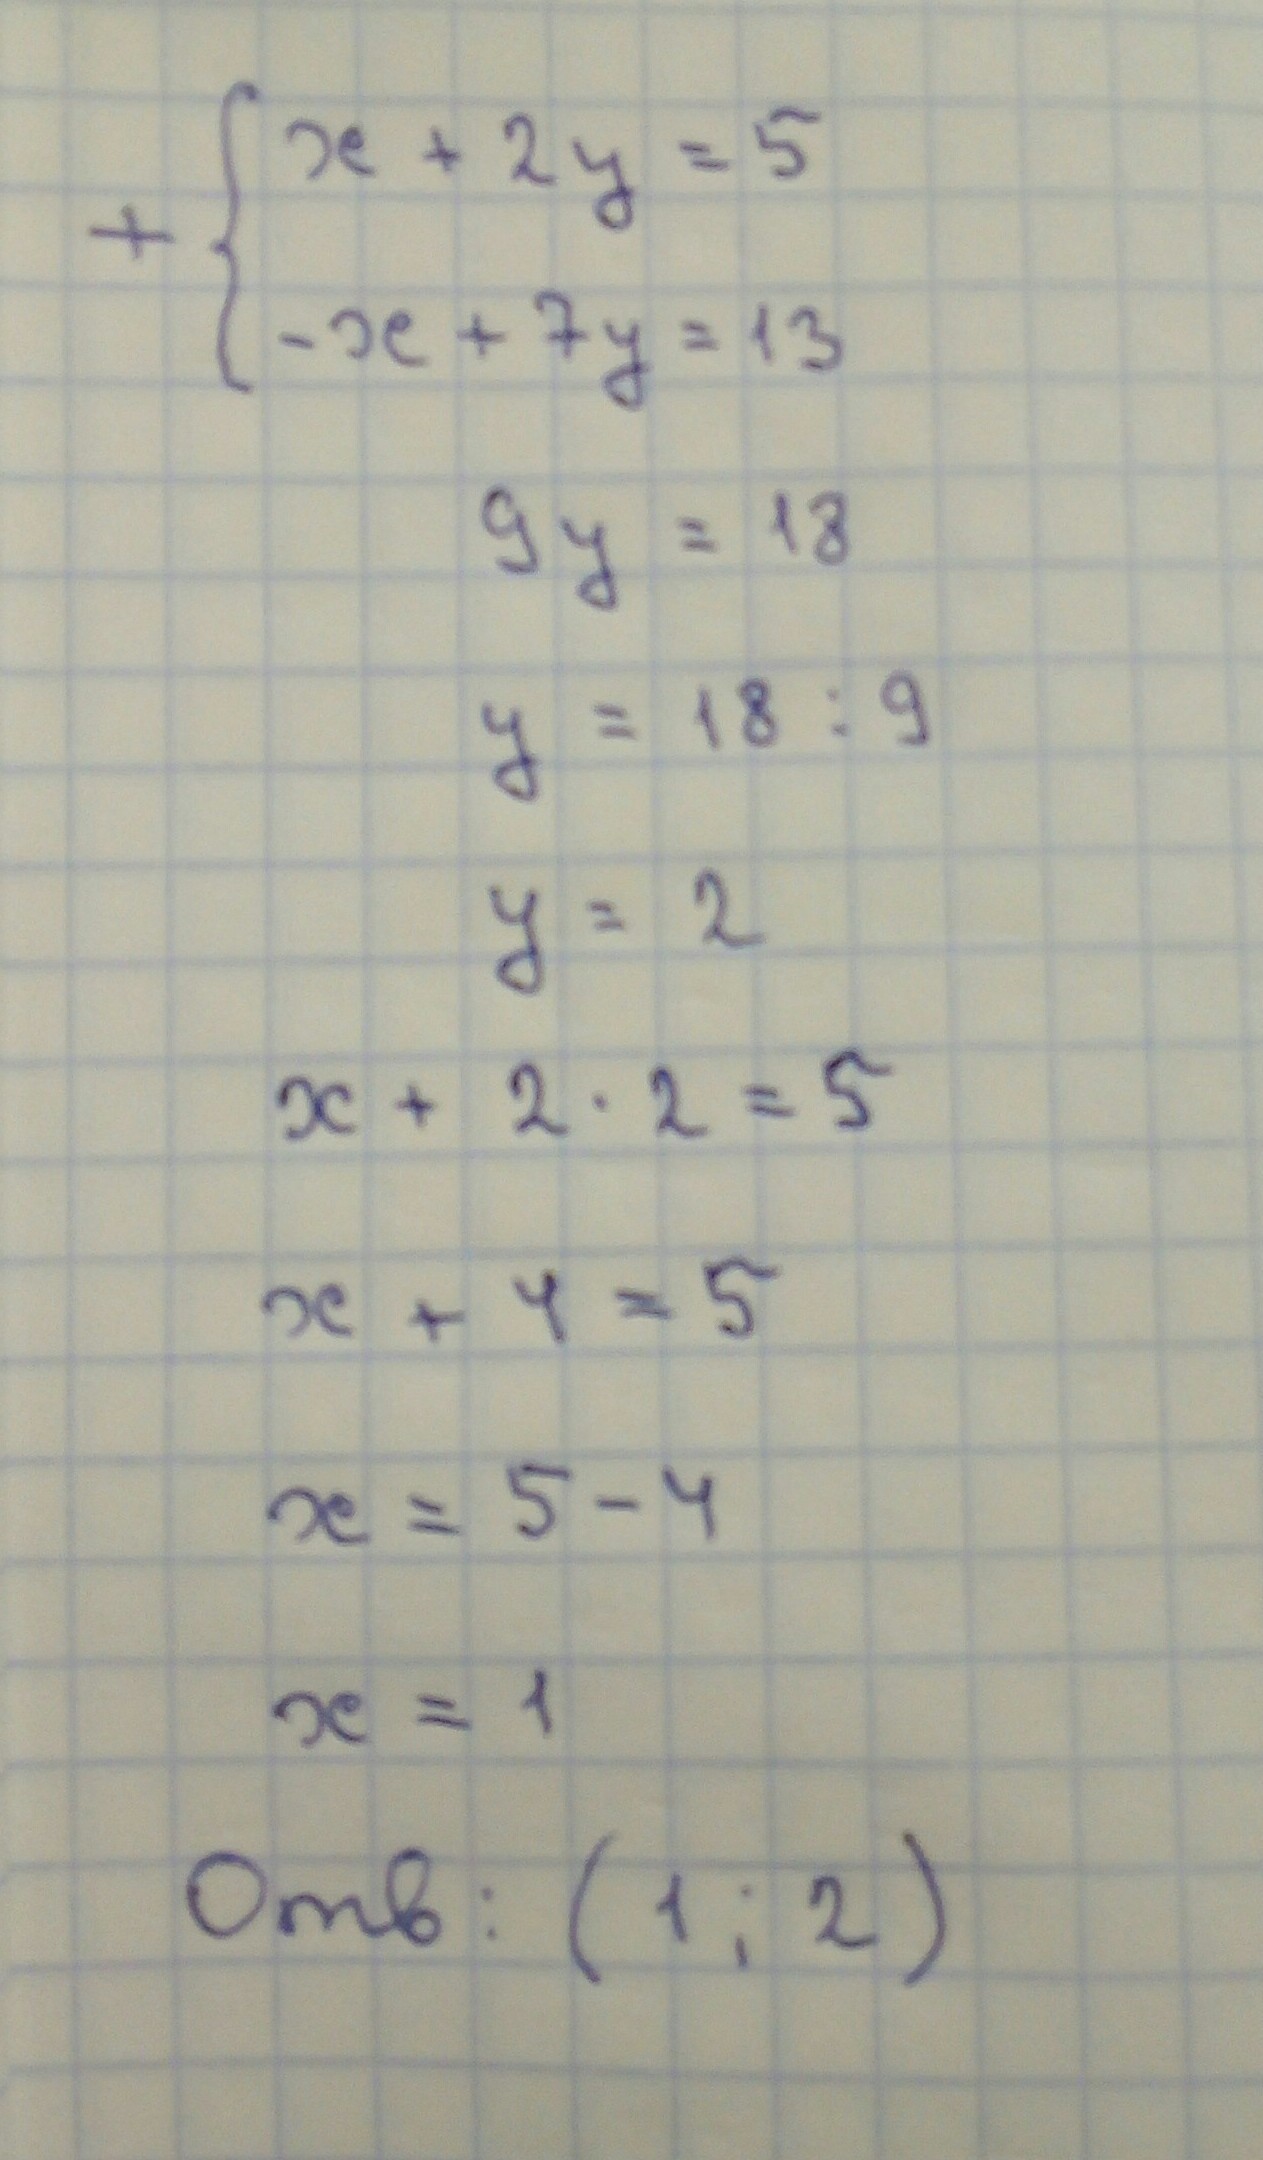 + { x + 2y = 5
-x + 7y = 13
9y = 18
y = 18 : 9
y = 2
x + 2 · 2 = 5
x + 4 = 5
x = 5 - 4
x = 1
Отв: (1; 2)